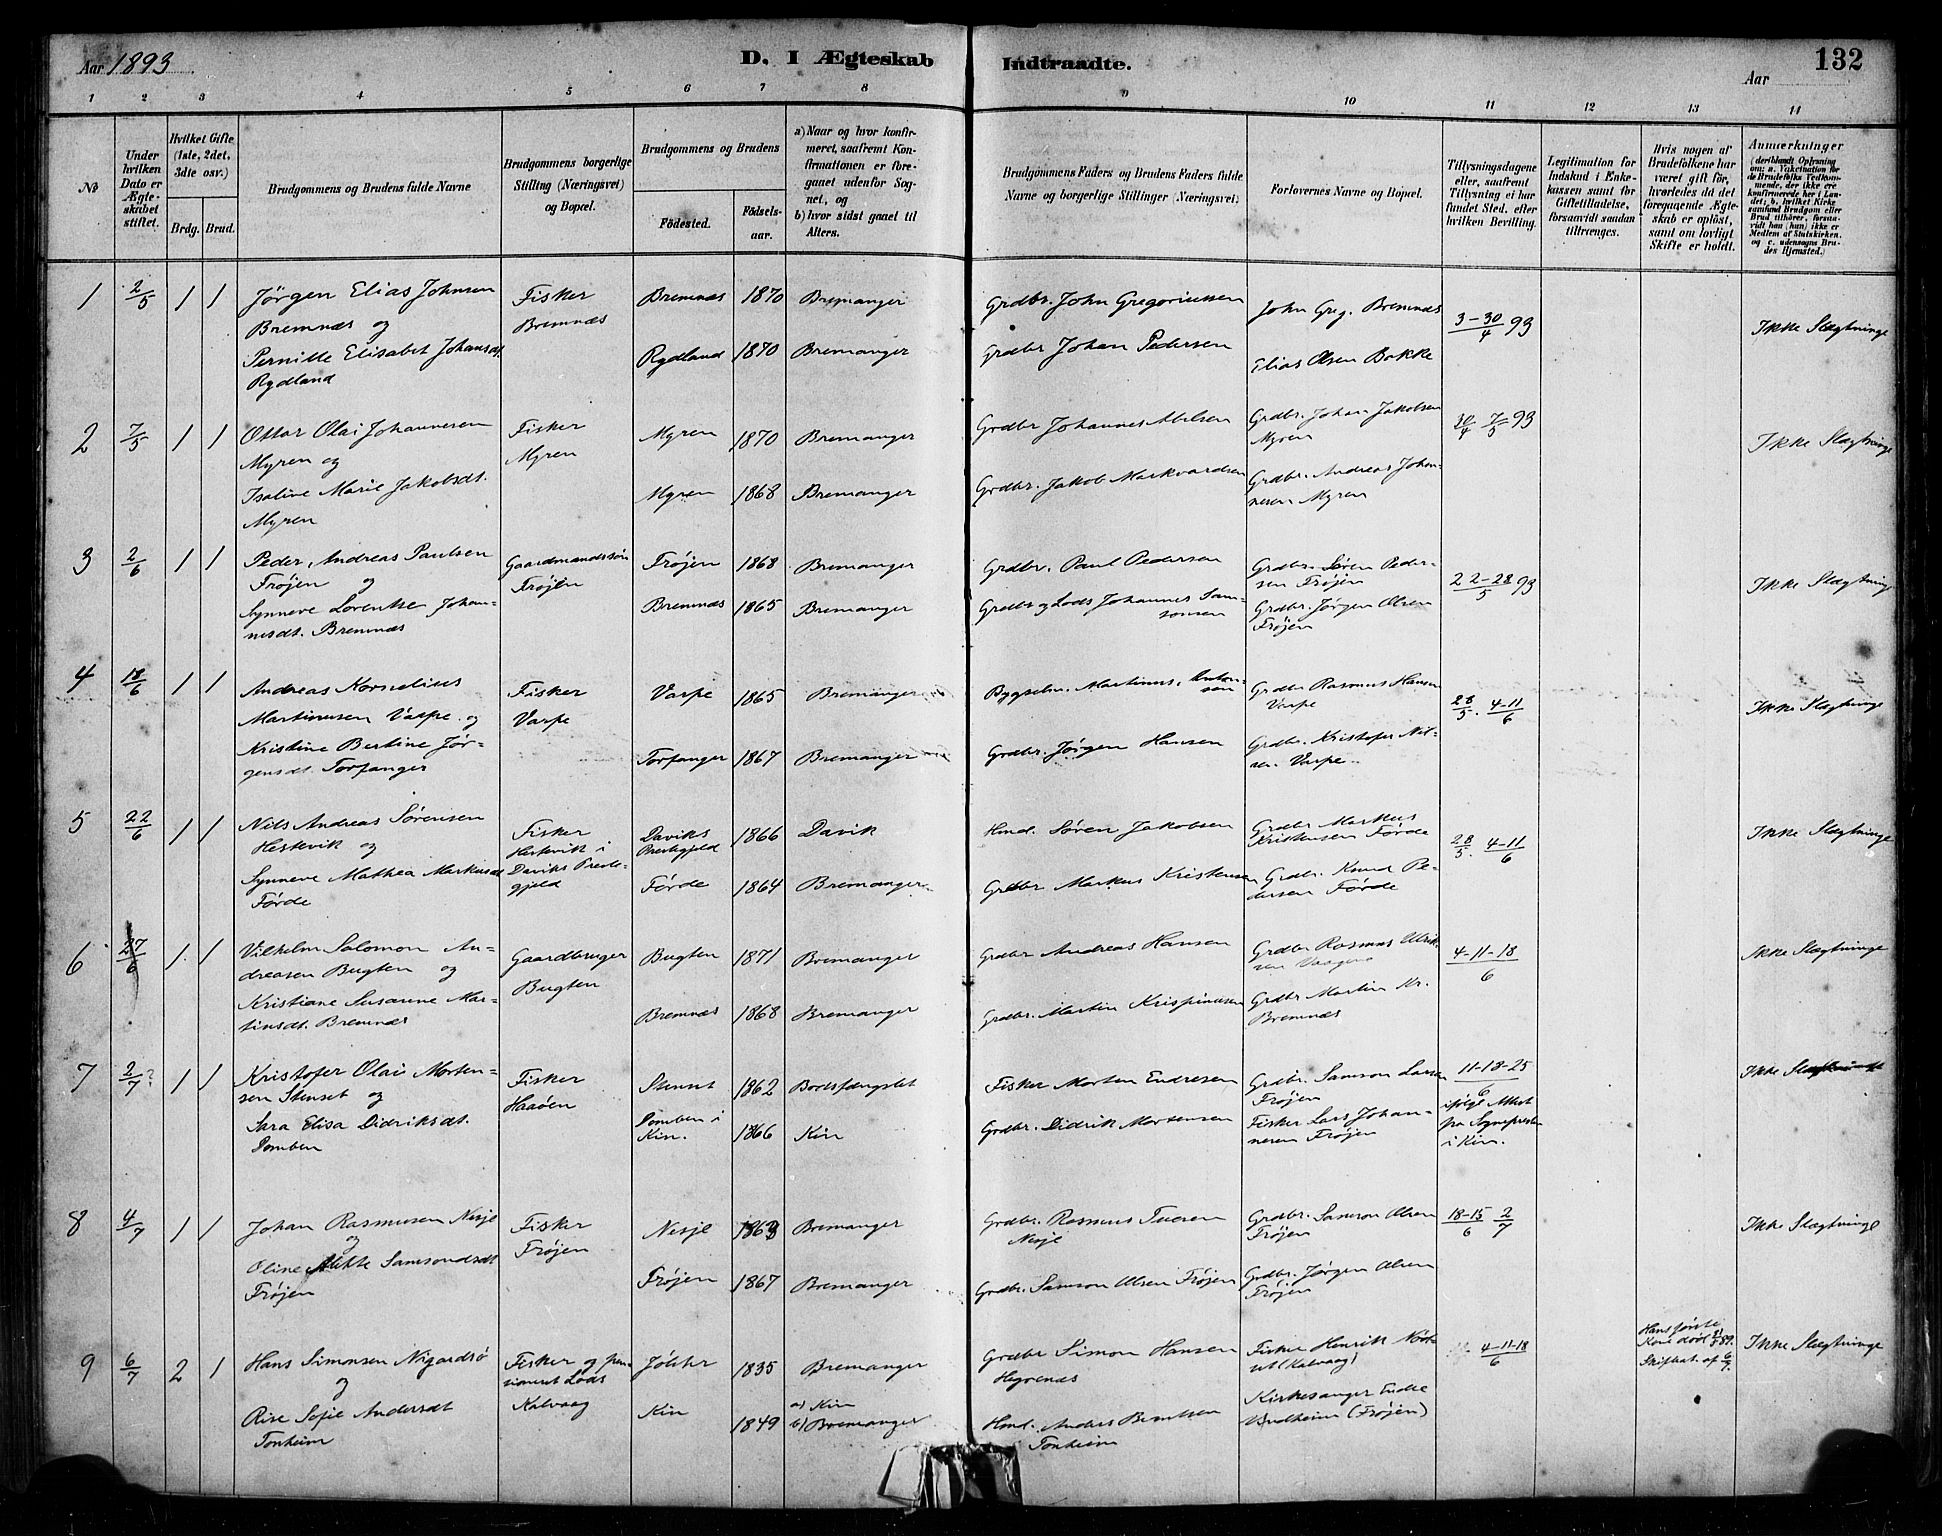 Aar 1893
D. I Ægteskab Indtraadte.
Aar
132
1 2 3 4 5 6 7 8 9 10 11 12 13 14
No
Under hvilken Dato er Ægteskabet stiftet.
Hvilket Gifte (1ste, 2det, 3dte osv.)
Brdg. Brud.
Brudgommens og Brudens fulde Navne
Brudgommens borgerlige Stilling (Næringsvei) og Bopæl.
Brudgommens og Brudens
Födested.
Födselsaar.
a) Naar og hvor konfirmeret, saafremt Konfirmationen er foregaaet udenfor Sognet, og
b) hvor sidst gaaet til Alters.
Brudgommens Faders og Brudens Faders fulde Navne og borgerlige Stillinger (Næringsvei)
Forlovernes Navne og Bopæl.
Tillysningsdagene eller, saafremt Tillysning ei har fundet Sted, efter hvilken Bevilling.
Legitimation for Indskud i Enkekassen samt for Giftetilladelse, forsaavidt saadan tiltrænges.
Hvis nogen af Brudefolkene har været gift för, hvorledes da det foregaaende Ægteskab er oplöst, samt om lovligt Skifte er holdt.
Anmerkninger
(deriblandt Oplysning om: a. Vakcination for de Brudefolks Vedkommende, der ikke ere konfirmerede her i Landet; b. hvilket Kirkesamfund Brudgom eller Brud tilhörer, forsaavidt han (hun) ikke er Medlem af Statskirken, og c. udensogns Brudes Hjemsted.)
1 2/5 1 1
Jörgen Elias Johnsen
Bremnæs og
Pernille Elisabet Johansdt.
Rydland
Fisker
Bremnæs
Bremnæs 1870 Bremanger
Rydland 1870 Bremanger
Grdbr. John Gregoriussen
Grdbr Johan Pedersen
John Greg. Bremnæs
Elias Olsen Bakke
3-30/4 93
Ikke Slægtninge
2 7/5 1 1
Ottar Olai Johannesen
Myren og
Isaline Marie Jakobsdt.
Myren
Fisker
Myren
Myren 1870 Bremanger
Myren 1868 Bremanger
Grdbr Johannes Abelsen
Grdbr. Jakob Markvardsen
Grdbr. Johan Jakobsen
Myren
Grdbr. Andreas Johannesen Myren
30/4 7/5 93
Ikke Slægtninge
3 2/6 1 1
Peder Andreas Paulsen
Fröjen og
Synneve Lorentse Johannesdt. Bremnæs
Gaardmandssön
Fröjen
Fröjen 1868 Bremanger
Bremnæs 1865 Bremanger
Grdbr. Paul Pedersen
Grdbr og Lods Johannes Samsonsen
Grdbr. Sören Pedersen Fröjen
Grdbr. Jörgen Olsen
Fröjen
22-28/5 93
Ikke Slægtning
4 18/6 1 1
Andreas Kornelius
Martinusen Varpe og
Kristine Bertine Jörgensdt. Torfanger
Fisker
Varpe
Varpe 1865 Bremanger
Torfanger 1867 Bremanger
Bygselm. Martinus Antonsen
Grdbr. Jörgen Hansen
Grdbr Rasmus Hansen
Varpe
Grdbr. Kristofer Nilsen Varpe
28/5. 4-11/6
Ikke Slægtninge
5 22/6 1 1
Nils Andreas Sörensen
Hestevik og
Synneve Mathea Markusdt
Förde
Fisker
Hestevik i
Daviks Prestegjeld
Daviks
Prestegjeld 1866 Davik
Förde 1864 Bremanger
Hmd. Sören Jakobsen
Grdbr Markus Kristensen
Grdbr Markus
Kristensen Förde
Grdbr. Knud Pedersen Förde
28/5. 4-11/6
Ikke Slægtninge
6 27/6 1 1
Vilhelm Salomon Andreasen Bugten og
Kristiane Susanne Martinsdt. Bremnæs
Gaardbruger
Bugten
Bugten 1871 Bremanger
Bremnæs 1868 Bremanger
Grdbr Andreas Hansen
Grdbr. Martin Krispinusen
Grdbr Rasmus Ulriksen
Grdbr Martin Kr.
Bremnæs
4-11-18/6
Ikke Slægtninge
7 2/7 1 1
Kristofer Olai Mortensen Stenset og
Sara Elisa Didriksdt.
Domben
Fisker
Haaöen
Stenset 1862 Bodsfængslet
Domben i
Kin. 1866 Kin
Fisker Morten Endresen
Grdbr. Didrik Mortensen
Grdbr. Samson Larsen
Fröjen
Fisker Lars Johannesen Fröjen
11-18-25/6
ifölge Attest
fra Sognepresten
i Kin.
Ikke Slægtninge
8 4/7 1 1
Johan Rasmusen Nesje
og
Oline Alette Samsonsdt
Fröjen
Fisker
Fröjen
Nesje 1863 Bremanger
Fröjen 1867 Bremanger
Grdbr. Rasmus Tuesen
Nesje
Grdbr. Samson Olsen Fröjen
Grdbr. Samson Olsen
Fröjen
Grdbr. Jörgen Olsen
Fröjen
18-15/6 2/7
Ikke Slægtninge
9 6/7 2 1
Hans Simonsen Nigardsö
og
Rise Sofie Andersdt
Tonheim
Fisker og pensioneret Lods
Kalvaag
Jölster 1835 Bremanger
Kin 1849 a) Kin
b) Bremanger
Grdbr Simon Hansen
Hegrenæs
Hmd. Anders Berntsen
Tonheim
Fisker Henrik
(Kalvaag)
Kirkesanger Endre
Vindheim (Fröjen)
4-11-18/6
Hans förste
Kone död 89.
Skifteat. af 6/7.
Ikke Slægtninge